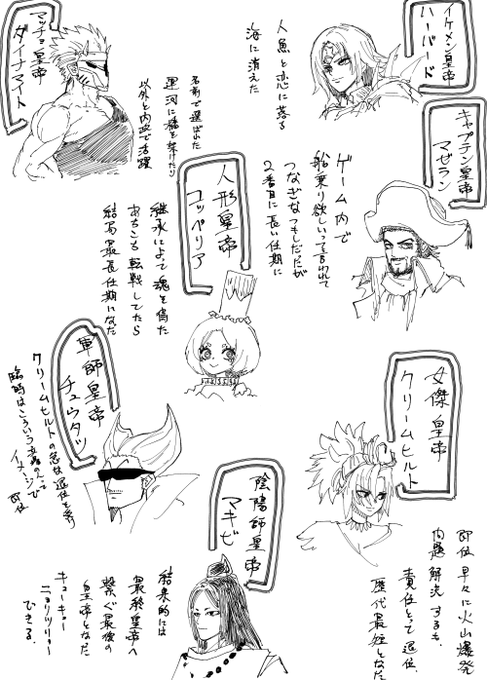 イケメン皇帝
ハーバード
人魚と恋に落る
海に消えた
マッチョ皇帝
ダイナマイト
名前で選ばれ
運河に橋を架けたり
以外と内政で活躍
キャプテン皇帝
マゼラン
ゲーム内で
船乗り欲しいって言われて
つなぎなつもりだたが
2番目に長い任期に
人形皇帝
コッペリア
継承によって魂を得た
あちこち転戦してたら
結局最長任期になた
女傑皇帝
クリームヒルト
即位早々に火山爆発
問題解決するも、
責任とって退位、
歴代最短となた
軍師皇帝
チュウタツ
クリームヒルトの急な退位を受け
臨時はこういう
イメージで
即位
陰陽師皇帝
マキビ
結果的には
最終皇帝へ
繋ぐ最後の
皇帝となた
キューキョー
ニョリツリョー
できる.